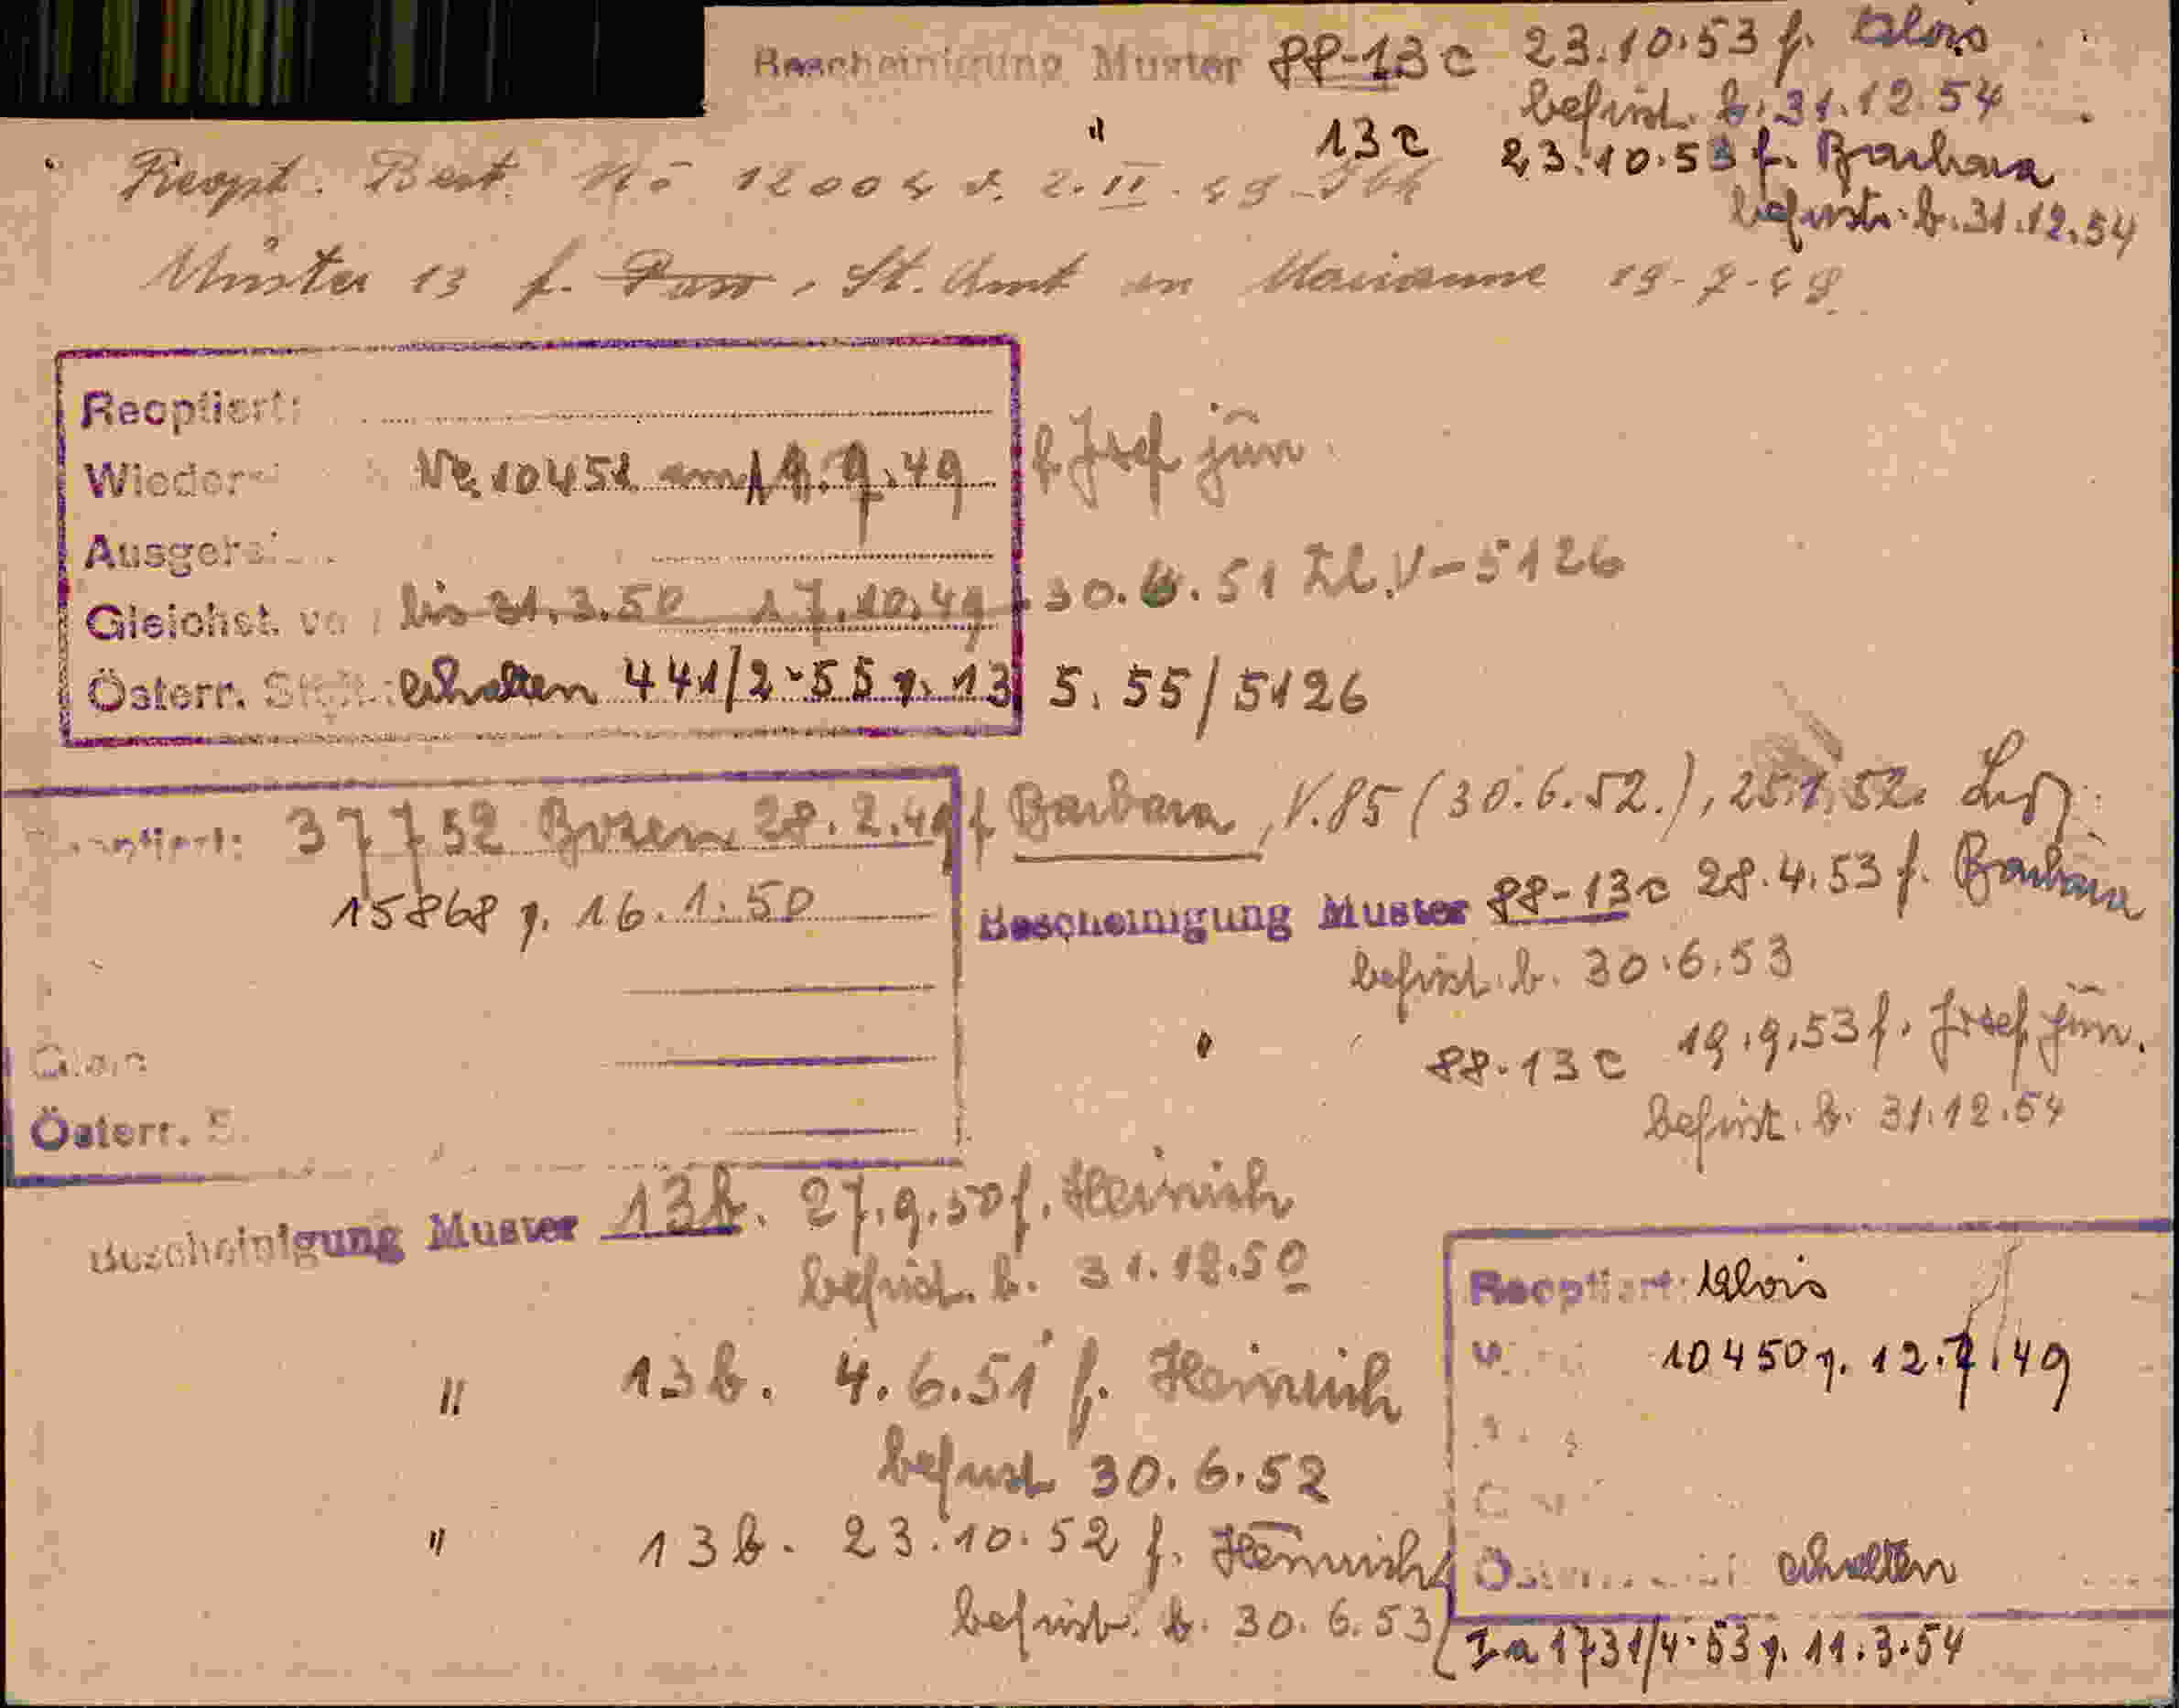 Bescheinigung Muster 88-13c 23.10.53 f. Alois
befrist. b. 31.12.54
" 13c 23.10.53 f. Barbara
befrist. b. 31.12.54
Reopt. Best. No 12004 v. 2.II.49
Muster 13 f. Pass, St. Amt an Marianne 19-7-49
Reoptiert:
Wieder Nr. 10451 am 9.49 f. Josef jun.
Ausgere
Gleichst. vo bis 31.3.50 17.10.49 30.6.51 Zl. V-5126
Österr. St erhalten 441/2-55 v. 13.5.55/5126
ptiert: 37752 Bozen 28.2.49 f Barbara, V.85 (30.6.52.), 25.1.52.
15868 v. 16.1.50
Bescheinigung Muster 88-13c 28.4.53 f. Barbara
befrist. b. 30.6.53
" 88-13c 19.9.53 f. Josef jun.
befrist. b. 31.12.54
Österr. S
Bescheinigung Muster 13b. 27.9.50 f. Heinrich
befrist. b. 31.12.50
" 13b. 4.6.51 f. Heinrich
befrist 30.6.52
" 13b. 23.10.52 f. Heinrich
befrist. b. 30.6.53
Reoptiert: Alois
10450 v. 12.7.49
Ö erhalten
Ia 1731/4-53 v. 11.3.54